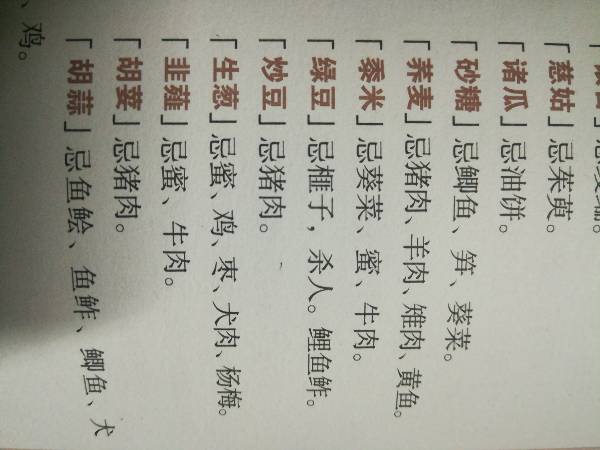 「慈姑」忌茱萸。
「诸瓜」忌油饼。
「砂糖」忌鲫鱼、笋、葵菜。
「荞麦」忌猪肉、羊肉、雉肉、黄鱼。
「黍米」忌葵菜、蜜、牛肉。
「绿豆」忌榧子，杀人。鲤鱼鲊。
「炒豆」忌猪肉。
「生葱」忌蜜、鸡、枣、犬肉、杨梅。
「韭薤」忌蜜、牛肉。
「胡荽」忌猪肉。
「胡蒜」忌鱼鲙、鱼鲊、鲫鱼、犬
、鸡。